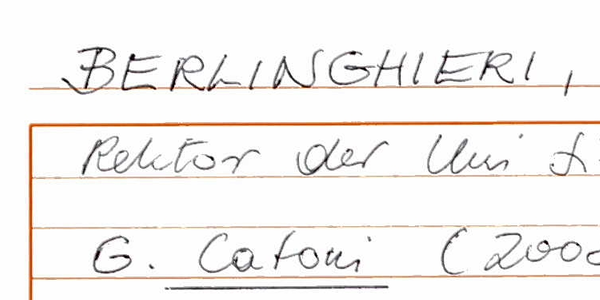 BERLINGHIERI,
Rektor der Uni
G. Catoni (200